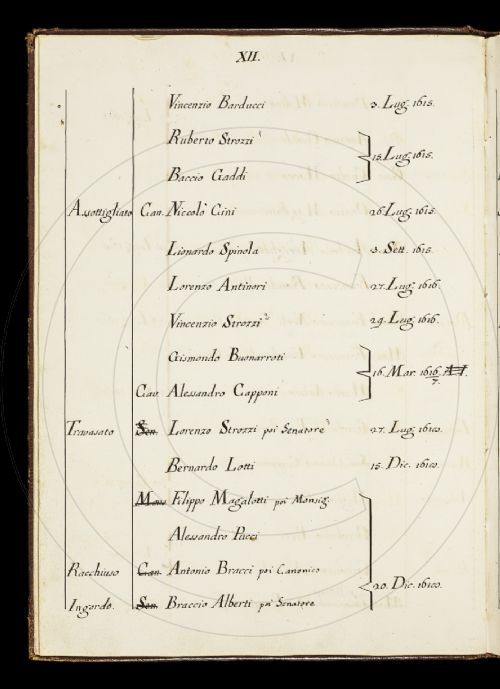 XII.
Vincenzio Barducci 3. Lug. 1615.
Ruberto Strozzi
15. Lug. 1615.
Baccio Gaddi
Assottigliato Can. Niccolò Gini 26. Lug. 1615.
Lionardo Spinola 3. Sett. 1615.
Lorenzo Antinori 27. Lug. 1616.
Vincenzio Strozzi 29. Lug. 1616.
Gismondo Buonarroti
16. Mar. 1616/7.
Cav. Alessandro Capponi
Travasato Sen. Lorenzo Strozzi poi Senatore 27. Lug.
Bernardo Lotti 15. Dic.
Mons Filippo Magalotti poi Monsig.
Alessandro Pucci
Racchiuso Can. Antonio Bracci poi Canonico
20. Dic.
Ingordo. Sen. Braccio Alberti poi Senatore